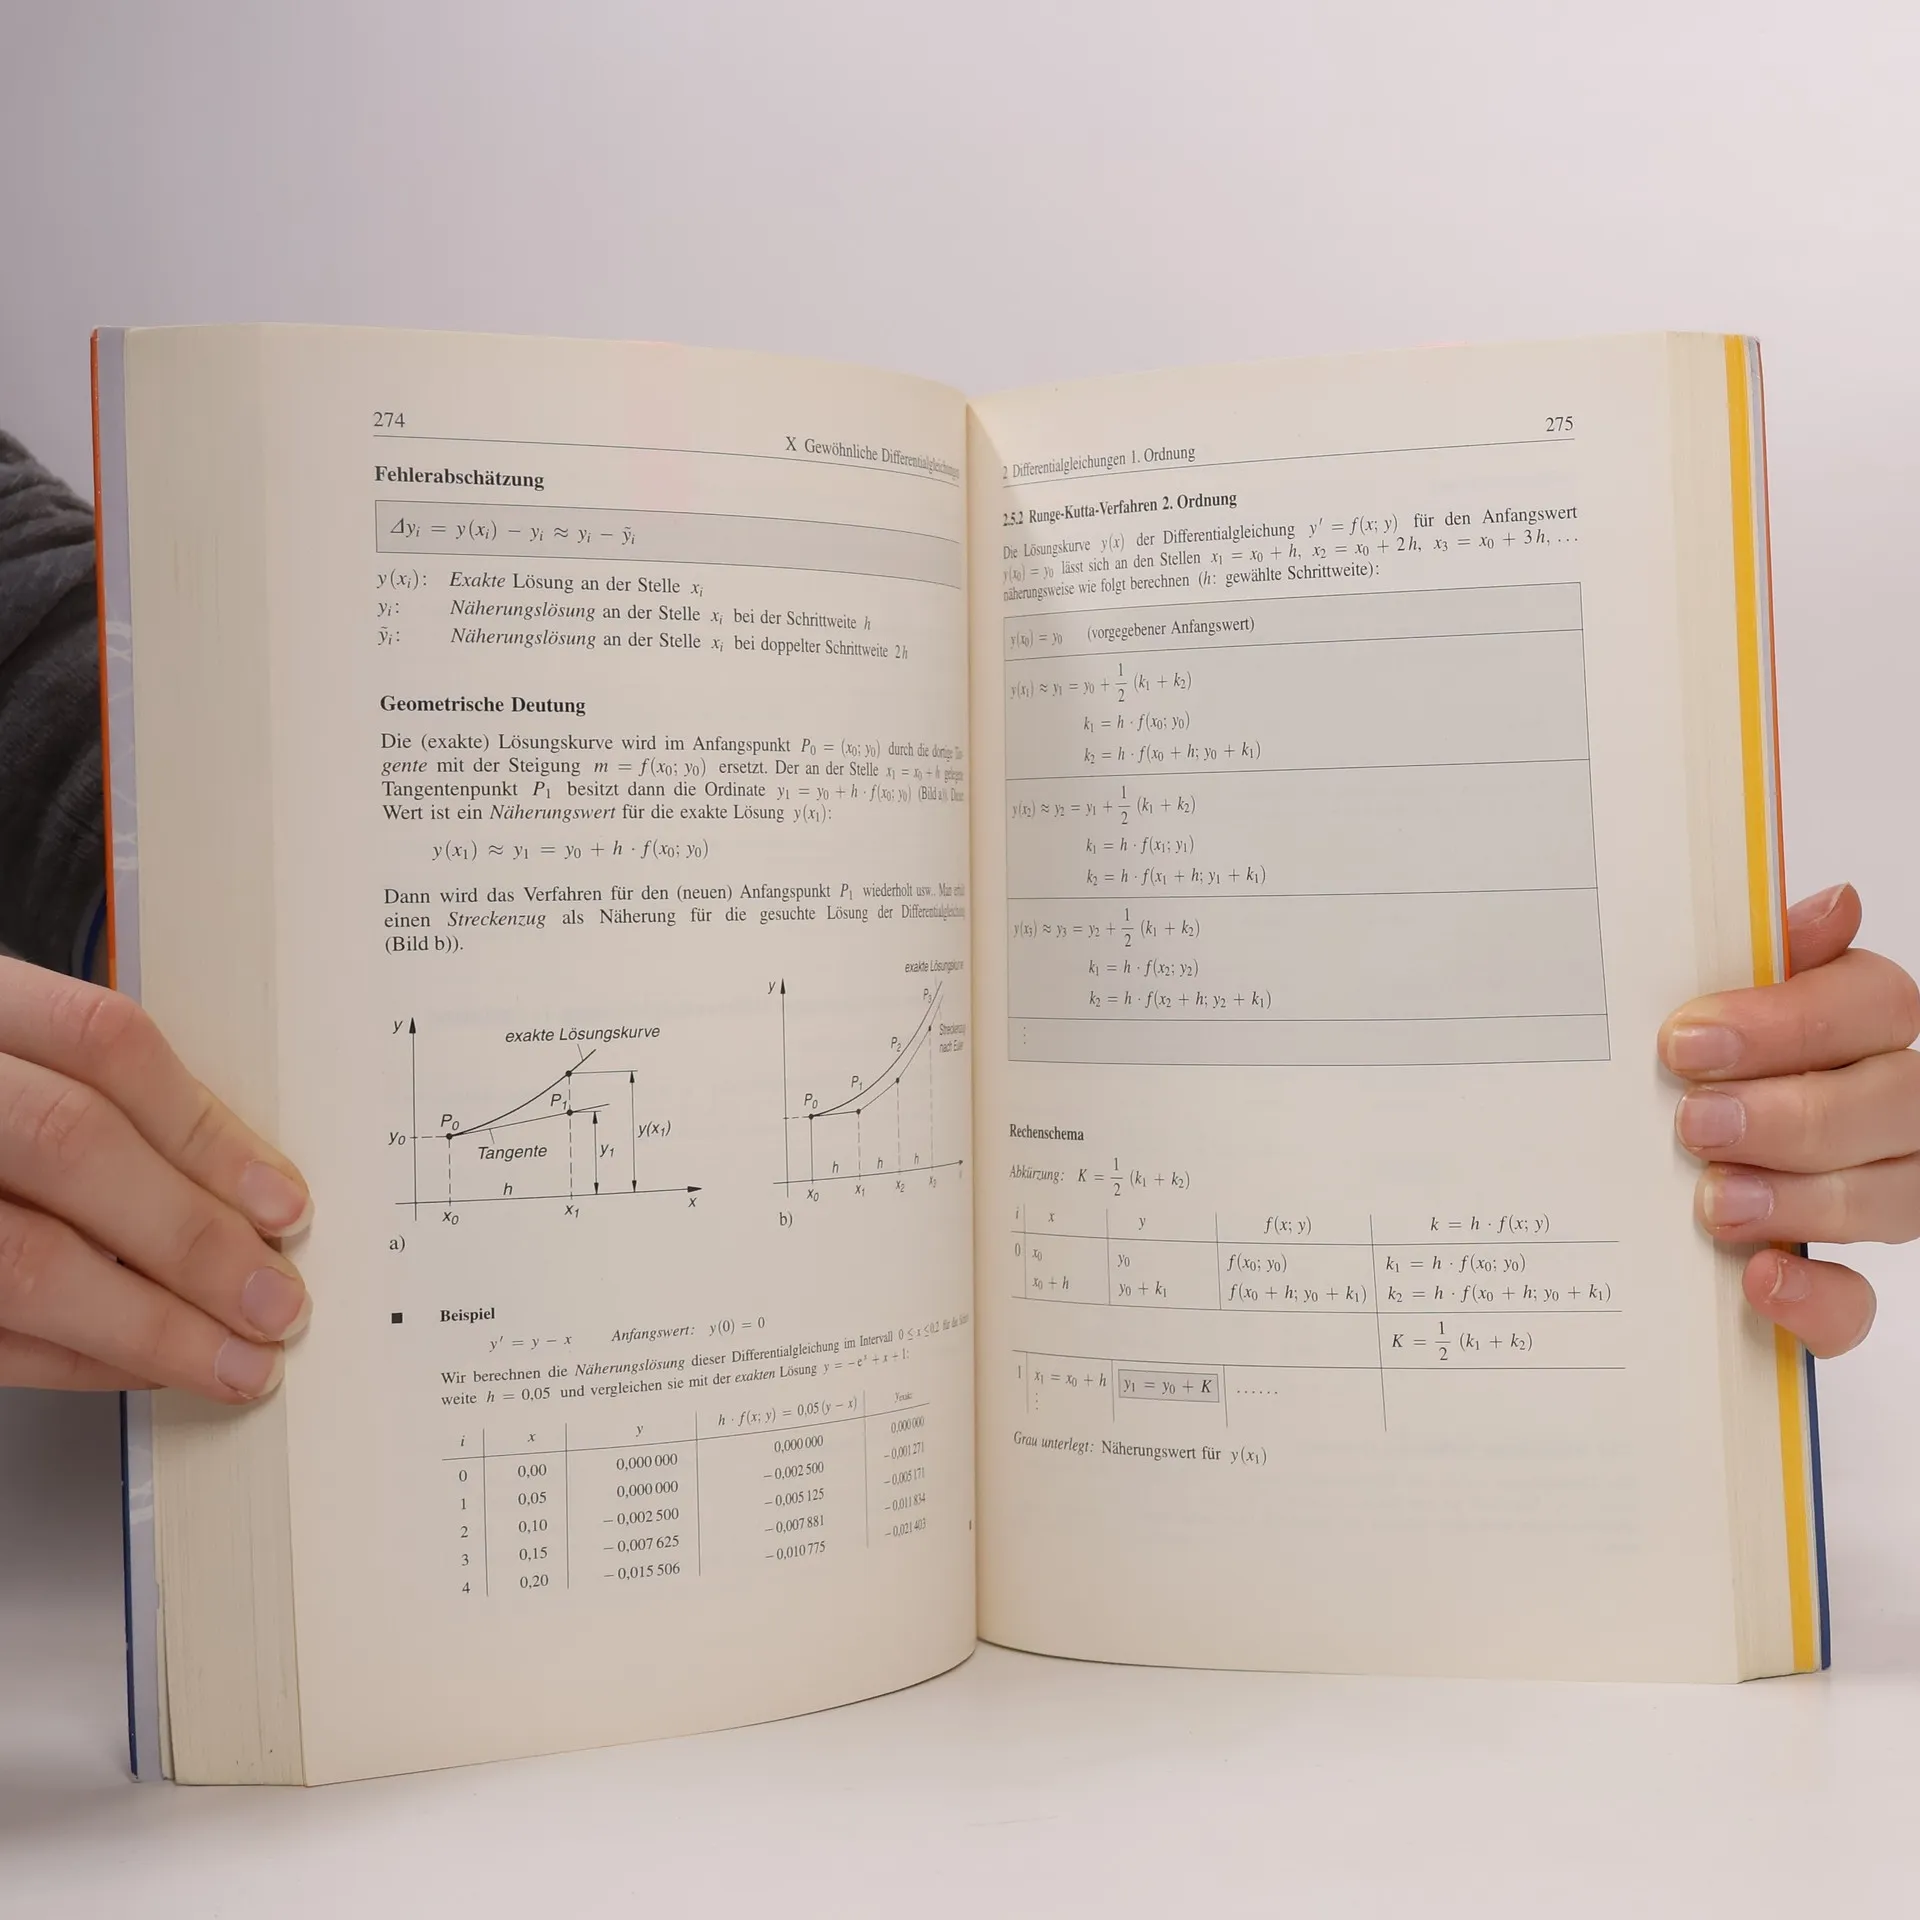 274
X Gewöhnliche Differentialgleichungen
Fehlerabschätzung
Δyᵢ = y(xᵢ) − yᵢ ≈ yᵢ − ỹᵢ
y(xᵢ): Exakte Lösung an der Stelle xᵢ
yᵢ: Näherungslösung an der Stelle xᵢ bei der Schrittweite h
ỹᵢ: Näherungslösung an der Stelle xᵢ bei doppelter Schrittweite 2h
Geometrische Deutung
Die (exakte) Lösungskurve wird im Anfangspunkt P₀ = (x₀; y₀) durch die dortige Tan-
gente mit der Steigung m = f(x₀; y₀) ersetzt. Der an der Stelle x₁ = x₀ + h gelegene
Tangentenpunkt P₁ besitzt dann die Ordinate y₁ = y₀ + h · f(x₀; y₀) (Bild a)). Dieser
Wert ist ein Näherungswert für die exakte Lösung y(x₁):
y(x₁) ≈ y₁ = y₀ + h · f(x₀; y₀)
Dann wird das Verfahren für den (neuen) Anfangspunkt P₁ wiederholt usw.. Man erhält
einen Streckenzug als Näherung für die gesuchte Lösung der Differentialgleichung
(Bild b)).
y
exakte Lösungskurve
P₀
P₁
y₀
Tangente
y₁
y(x₁)
h
x₀
x₁
x
a)
y
exakte Lösungskurve
P₃
P₂
P₁
P₀
Streckenzug
nach Euler
h h h
x₀ x₁ x₂ x₃
b)
■ Beispiel
y′ = y − x Anfangswert: y(0) = 0
Wir berechnen die Näherungslösung dieser Differentialgleichung im Intervall 0 ≤ x ≤ 0,2 für die Schritt-
weite h = 0,05 und vergleichen sie mit der exakten Lösung y = −eˣ + x + 1:
i x y h · f(x; y) = 0,05 (y − x) y_exakt
0 0,00 0,000 000 0,000 000 0,000 000
1 0,05 0,000 000 − 0,002 500 − 0,001 271
2 0,10 − 0,002 500 − 0,005 125 − 0,005 171
3 0,15 − 0,007 625 − 0,007 881 − 0,011 834
4 0,20 − 0,015 506 − 0,010 775 − 0,021 403
2 Differentialgleichungen 1. Ordnung
275
2.5.2 Runge-Kutta-Verfahren 2. Ordnung
Die Lösungskurve y(x) der Differentialgleichung y′ = f(x; y) für den Anfangswert
y(x₀) = y₀ lässt sich an den Stellen x₁ = x₀ + h, x₂ = x₀ + 2h, x₃ = x₀ + 3h, ...
näherungsweise wie folgt berechnen (h: gewählte Schrittweite):
y(x₀) = y₀ (vorgegebener Anfangswert)
y(x₁) ≈ y₁ = y₀ + 1/2 (k₁ + k₂)
k₁ = h · f(x₀; y₀)
k₂ = h · f(x₀ + h; y₀ + k₁)
y(x₂) ≈ y₂ = y₁ + 1/2 (k₁ + k₂)
k₁ = h · f(x₁; y₁)
k₂ = h · f(x₁ + h; y₁ + k₁)
y(x₃) ≈ y₃ = y₂ + 1/2 (k₁ + k₂)
k₁ = h · f(x₂; y₂)
k₂ = h · f(x₂ + h; y₂ + k₁)
⋮
Rechenschema
Abkürzung: K = 1/2 (k₁ + k₂)
i x y f(x; y) k = h · f(x; y)
0 x₀ y₀ f(x₀; y₀) k₁ = h · f(x₀; y₀)
x₀ + h y₀ + k₁ f(x₀ + h; y₀ + k₁) k₂ = h · f(x₀ + h; y₀ + k₁)
K = 1/2 (k₁ + k₂)
1 x₁ = x₀ + h y₁ = y₀ + K ......
⋮
Grau unterlegt: Näherungswert für y(x₁)